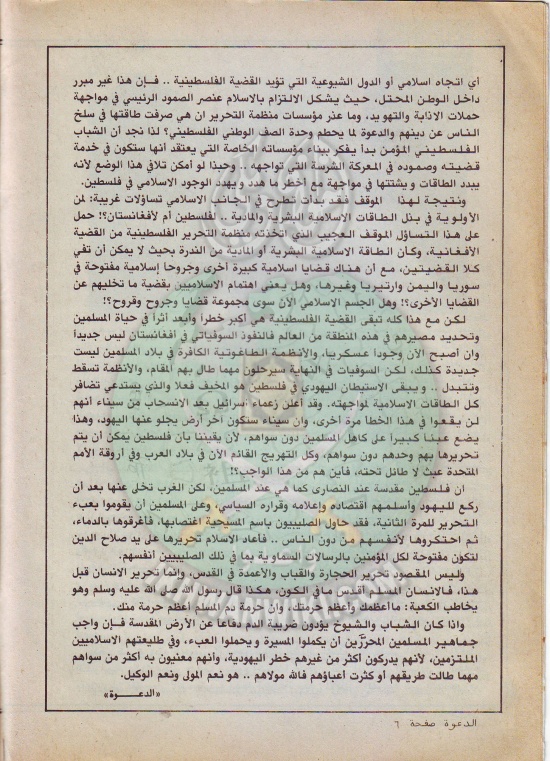 أي اتجاه اسلامي أو الدول الشيوعية التي تؤيد القضية الفلسطينية .. فإن هذا غير مبرر
داخل الوطن المحتل، حيث يشكل الالتزام بالاسلام عنصر الصمود الرئيسي في مواجهة
حملات الاذابة والتهويد، وما عذر مؤسسات منظمة التحرير ان هي صرفت طاقتها في سلخ
الناس عن دينهم والدعوة لما يحطم وحدة الصف الوطني الفلسطيني؟ لذا نجد أن الشباب
الفلسطيني المؤمن بدأ يفكر ببناء مؤسساته الخاصة التي يعتقد أنها ستكون في خدمة
قضيته وصموده في المعركة الشرسة التي تواجهه . وحبذا لو أمكن تلافي هذا الوضع لأنه
يبدد الطاقات ويشتتها في مواجهة مع أخطر ما هدد ويهدد الوجود الاسلامي في فلسطين.
ونتيجة لهذا الموقف فقد بدأت تطرح في الجانب الاسلامي تساؤلات غريبة: لمن
الأولوية في بذل الطاقات الاسلامية البشرية والمادية .. لفلسطين أم لأفغانستان؟! حمل
على هذا التساؤل الموقف العجيب الذي اتخذته منظمة التحرير الفلسطينية من القضية
الأفغانية، وكأن الطاقة الاسلامية البشرية أو المادية من الندرة بحيث لا يمكن أن تفي
كلا القضيتين، مع أن هناك قضايا اسلامية كبيرة أخرى وجروحا إسلامية مفتوحة في
سوريا واليمن وارتيريا وغيرها، وهل يعني اهتمام الاسلاميين بقضية ما تخليهم عن
القضايا الأخرى؟! وهل الجسم الاسلامي الآن سوى مجموعة قضايا وجروح وقروح؟!
لكن مع هذا كله تبقى القضية الفلسطينية هي أكبر خطراً وأبعد أثراً في حياة المسلمين
وتحديد مصيرهم في هذه المنطقة من العالم فالنفوذ السوفياتي في أفغانستان ليس جديداً
وان أصبح الآن وجوداً عسكريا، والأنظمة الطاغوتية الكافرة في بلاد المسلمين ليست
جديدة كذلك، لكن السوفيات في النهاية سيرحلون مهما طال بهم المقام، والأنظمة تسقط
وتتبدل .. ويبقى الاستيطان اليهودي في فلسطين هو المخيف فعلا والذي يستدعي تضافر
كل الطاقات الاسلامية لمواجهته. وقد أعلن زعماء اسرائيل بعد الانسحاب من سيناء أنهم
لن يقعوا في هذا الخطأ مرة أخرى، وان سيناء ستكون آخر أرض يجلو عنها اليهود، وهذا
يضع عبئا كبيراً على كاهل المسلمين دون سواهم، لأن يقيننا بأن فلسطين يمكن أن يتم
تحريرها بهم وحدهم دون سواهم، وكل التهريج القائم الآن في بلاد العرب وفي أروقة الأمم
المتحدة عبث لا طائل تحته، فأين هم من هذا الواجب؟!
ان فلسطين مقدسة عند النصارى كما هي عند المسلمين، لكن الغرب تخلى عنها بعد أن
ركع لليهود وأسلمهم اقتصاده وإعلامه وقراره السياسي، وعلى المسلمين أن يقوموا بعبء
التحرير للمرة الثانية، فقد حاول الصليبيون باسم المسيحية اغتصابها، فأغرقوها بالدماء،
ثم احتكروها لأنفسهم من دون الناس .. فأعاد الاسلام تحريرها على يد صلاح الدين
لتكون مفتوحة لكل المؤمنين بالرسالات السماوية بما في ذلك الصليبيين أنفسهم.
وليس المقصود تحرير الحجارة والقباب والأعمدة في القدس، وانما تحرير الانسان قبل
هذا، فالانسان المسلم أقدس ما في الكون، هكذا قال رسول الله صلى الله عليه وسلم وهو
يخاطب الكعبة: ما أعظمك وأعظم حرمتك، وان حرمة دم المسلم أعظم حرمة منك.
واذا كان الشباب والشيوخ يؤدون ضريبة الدم دفاعاً عن الأرض المقدسة فإن واجب
جماهير المسلمين المحررين أن يكملوا المسيرة و يحملوا العبء، وفي طليعتهم الاسلاميين
الملتزمين، لأنهم يدركون أكثر من غيرهم خطر اليهودية، وأنهم معنيون به أكثر من سواهم
مهما طالت طريقهم أو كثرت أعباؤهم فالله مولاهم .. هو نعم المولى ونعم الوكيل.
«الدعـــوة»
الدعوة صفحة ٦